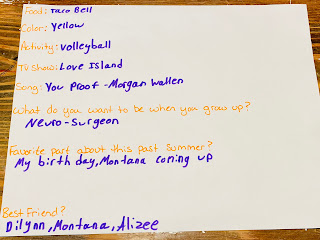 Food: Taco Bell
Color: Yellow
Activity: Volleyball
TV Show: Love Island
Song: You Proof - Morgan Wallen
What do you want to be when you grow up?
Neuro-Surgeon
Favorite part about this past Summer?
My birthday, Montana coming up
Best Friend?
Dilynn, Montana, Alizee